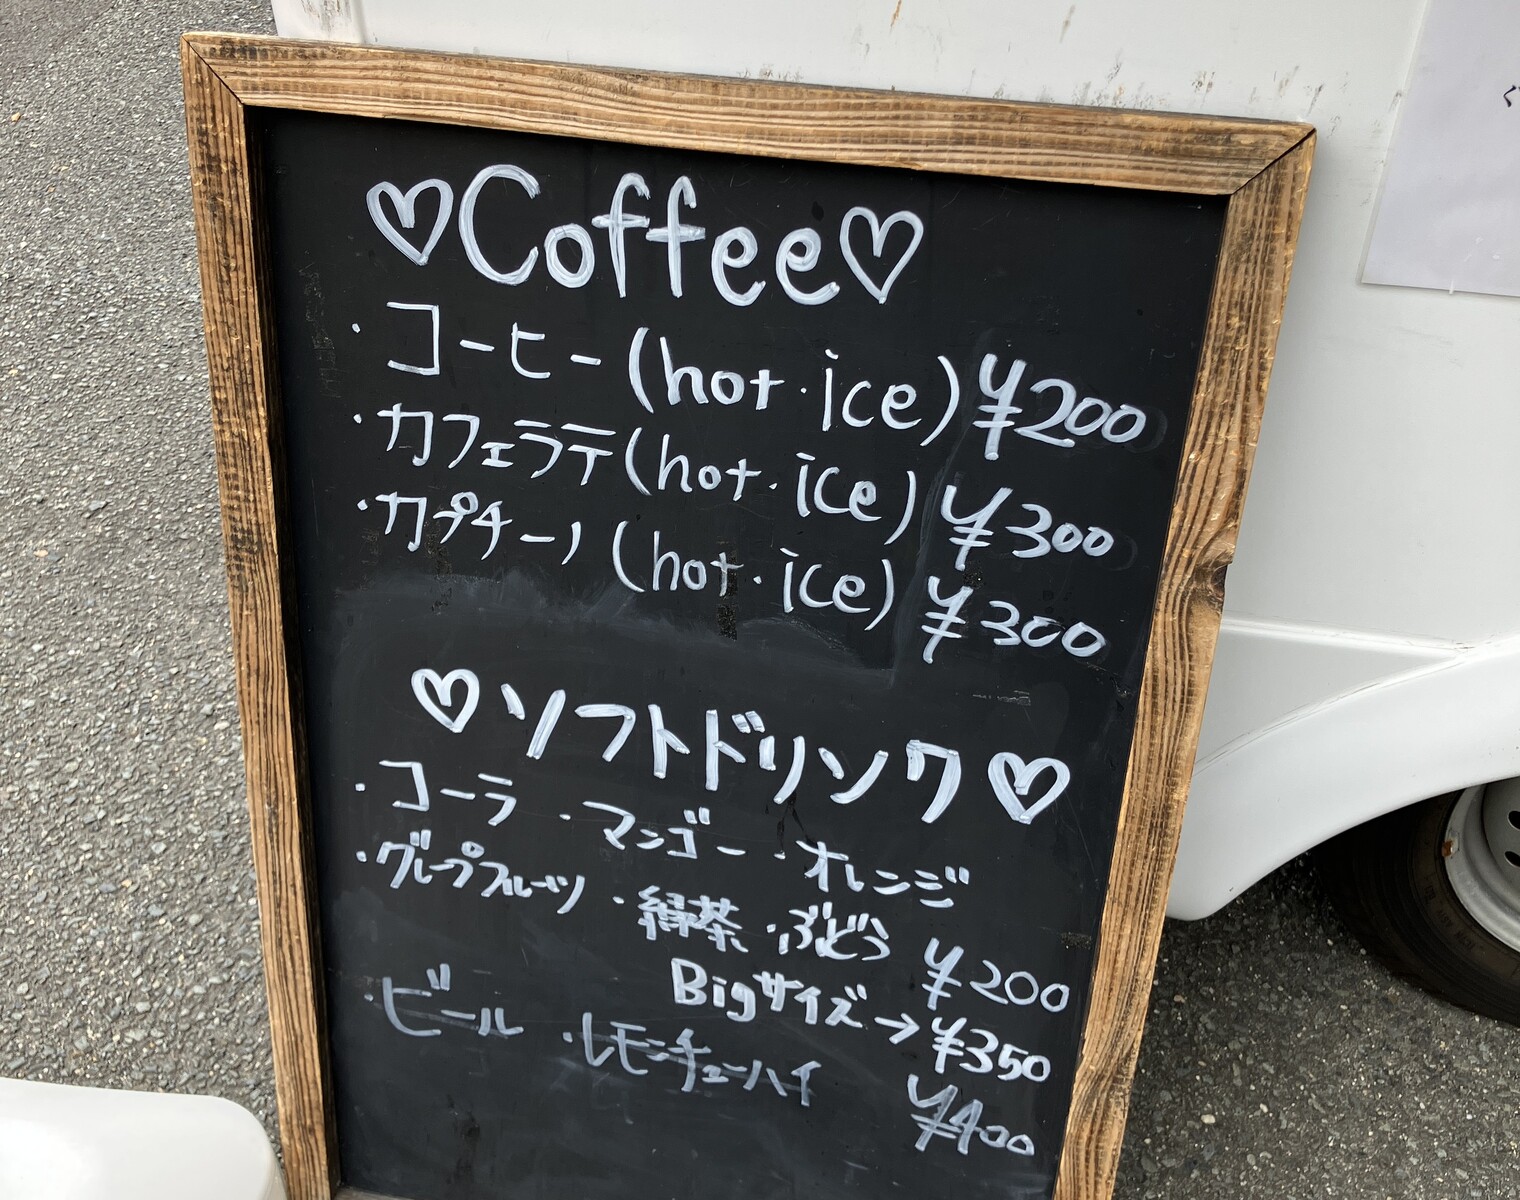 ♡Coffee♡
・コーヒー(hot・ice) ¥200
・カフェラテ(hot・ice) ¥300
・カプチーノ(hot・ice) ¥300
♡ソフトドリンク♡
・コーラ ・マンゴー ・オレンジ
・グレープフルーツ ・緑茶 ・ぶどう ¥200
Bigサイズ→¥350
・ビール ・レモンチューハイ ¥400